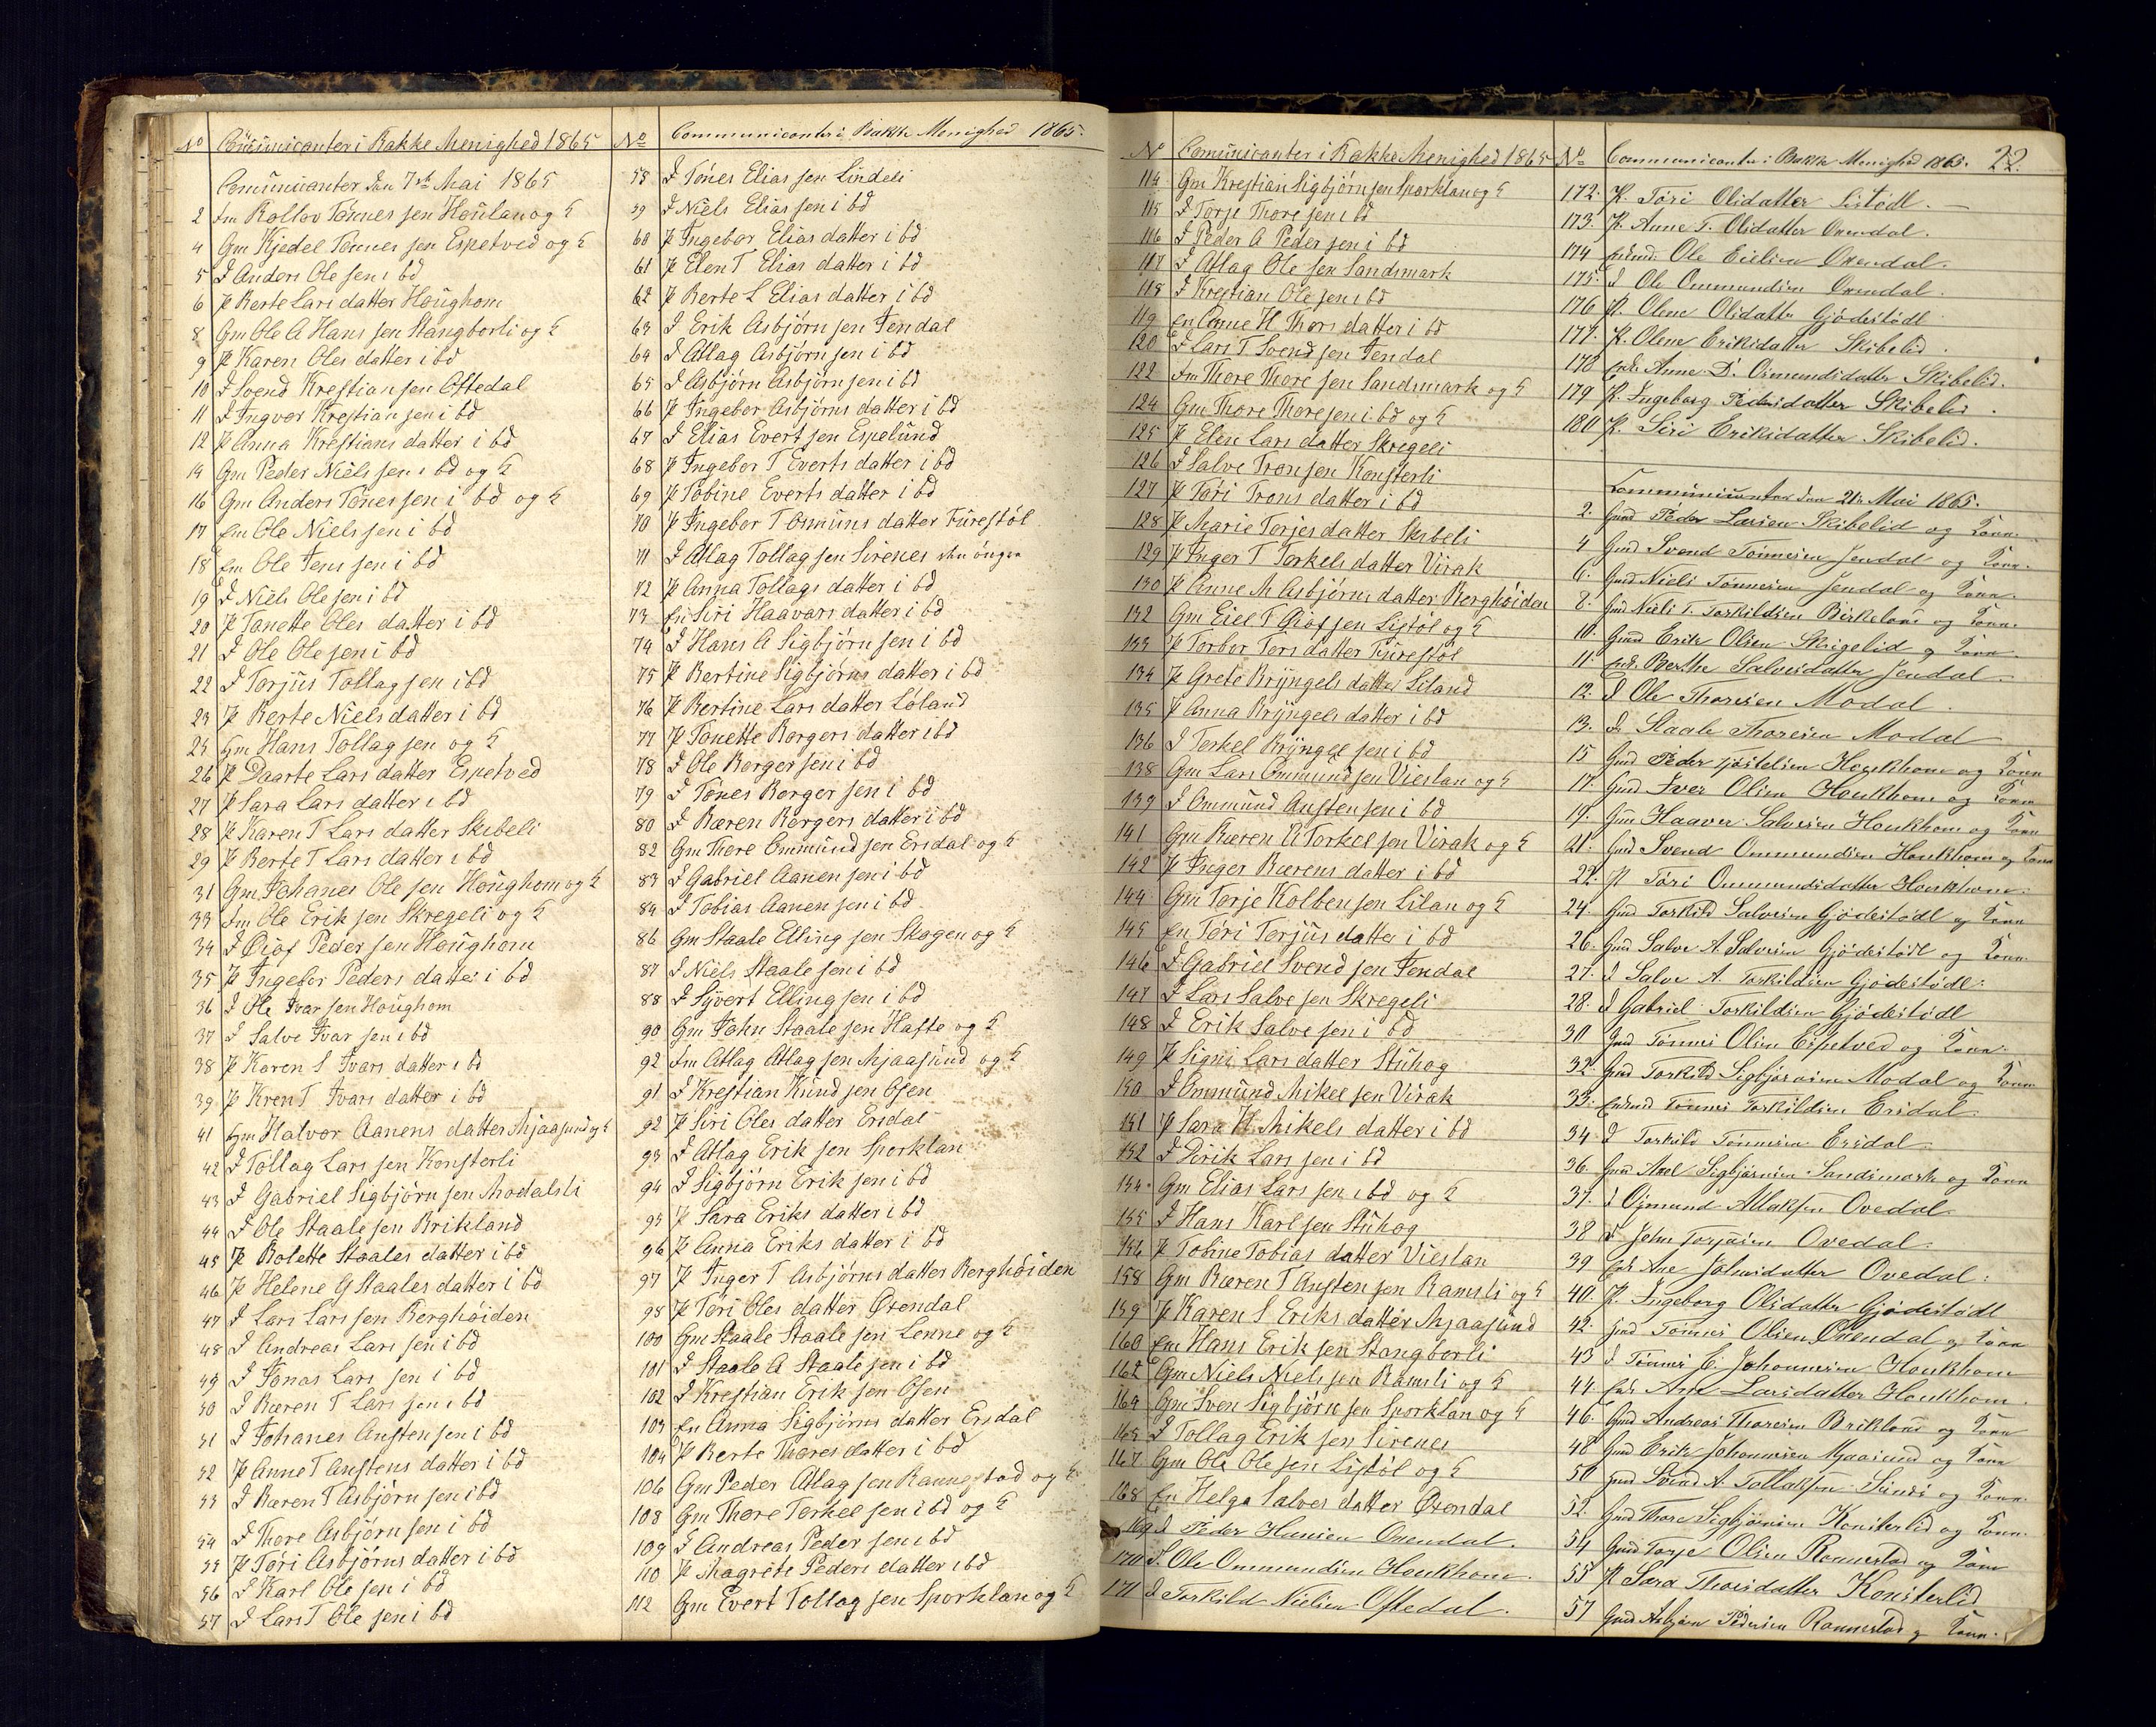 No Com̄unicanter i Bakke Menighed 1865
Com̄unicanter den 7de Mai 1865
2 Fm Rollov Tønnes sen Høŭlan og K
4 Gm Kjedel Tønnes sen Espetved og K
5 J Anders Ole sen i bd
6 P Berte Lars datter Hoŭghom
8 Gm Ole A Hans sen Stangborli og K
9 P Karen Oles datter i bd
10 J Svend Krestian sen Oftedal
11 J Ingvar Krestian sen i bd
12 P Anna Krestians datter i bd
14 Gm Peder Niels sen i bd og K
16 Gm Anders Tønes sen i bd og K
17 Em Ole Niels sen i bd
18 Em Ole Jens sen i bd
19 J Niels Ole sen i bd
20 P Tanette Oles datter i bd
21 J Ole Ole sen i bd
22 J Torjŭs Tollag sen i bd
23 P Berte Niels datter i bd
25 Gm Hans Tollag sen og K
26 P Daarte Lars datter Espetved
27 P Sara Lars datter i bd
28 P Karen T Lars datter Skibeli
29 P Berte T Lars datter i bd
31 Gm Johanes Ole sen Hoŭghom og K
33 Fm Ole Erik sen Skregeli og K
34 J Oiof Peder sen Hoŭghom
35 P Ingebor Peders datter i bd
36 J Ole Ivar sen Hoŭghom
37 J Salve Ivar sen i bd
38 P Karen S Ivars datter i bd
39 P Kren T Ivars datter i bd
41 Gm Halvor Aanens datter Mjaasund og K
42 J Tollag Lars sen Konsterli
43 J Gabriel Sigbjørn sen Modalsli
44 J Ole Staale sen Brikland
45 P Bolette Staales datter i bd
46 P Helene G Staales datter i bd
47 J Lars Lars sen Berghøiden
48 J Andreas Lars sen i bd
49 J Jonas Lars sen i bd
50 J Bæren T Lars sen i bd
51 J Johanes Austen sen i bd
52 P Anne T Austens datter i bd
53 J Bæren T Asbjørn sen i bd
54 J Thore Asbjørn sen i bd
55 P Tøri Asbjørns datter i bd
56 J Karl Ole sen i bd
57 J Lars T Ole sen i bd
No Communicanter i Bakke Menighed 1865.
58 J Tønes Elias sen Lindeli
59 J Niels Elias sen i bd
60 P Ingebor Elias datter i bd
61 P Elen T Elias datter i bd
62 P Berte L Elias datter i bd
63 J Erik Asbjørn sen Jendal
64 J Atlag Asbjørn sen i bd
65 J Asbjørn Asbjørn sen i bd
66 P Ingebor Asbjørns datter i bd
67 J Elias Evert sen Espelŭnd
68 P Ingebor T Everts datter i bd
69 P Tobine Everts datter i bd
70 P Ingebor T Osmŭns datter Fŭrestøl
71 J Atlag Tollag sen Sirenes
72 P Anna Tollags datter i bd
73 En Siri Haavars datter i bd
74 J Hans A Sigbjørn sen i bd
75 P Bertine Sigbjørns datter i bd
76 P Bertine Lars datter Løland
77 P Tonette Borgers datter i bd
78 J Ole Borger sen i bd
79 J Tønes Borger sen i bd
80 J Bæren Borgers datter i bd
82 Gm Thore Ommŭnd sen Ersdal og K
83 J Gabriel Aanen sen i bd
84 J Tobias Aanen sen i bd
86 Gm Staale Elling sen Skogen og K
87 J Niels Staale sen i bd
88 J Syvert Elling sen i bd
90 Gm John Staale sen Hafte og K
92 Fm Atlag Atlag sen Mjaasŭnd og K
91 J Krestian Knŭd sen Osen
92 P Siri Oles datter Ersdal
93 J Atlag Erik sen Sporklan
94 J Sigbjørn Erik sen i bd
95 P Sara Eriks datter i bd
96 P Anna Eriks datter i bd
97 P Inger T Asbjørns datter Berghøiden
98 P Tøri Oles datter Øxendal
100 Gm Staale Staale sen Lenne og K
101 J Staale A Staale sen i bd
102 J Krestian Erik sen Osen
103 En Anna Sigbjørns datter Ersdal
104 P Berte Thores datter i bd
106 Gm Peder Atlag sen Rannestad og K
108 Gm Thore Terkel sen i bd og K
109 J Andreas Peder sen i bd
110 P Magrete Peders datter i bd
112 Gm Evert Tollag sen Sporklan og K
No Com̄unicanter i Bakke Menighed 1865
114 Gm Krestian Sigbjørn sen Sporklan og K
115 J Torje Thore sen i bd
116 J Peder A Peder sen i bd
117 J Atlag Ole sen Sandsmark
118 J Krestian Ole sen i bd
119 En Anne H Thors datter i bd
120 J Lars T Svend sen Jendal
122 Fm Thore Thore sen Sandsmark og K
124 Gm Thore Thore sen i bd og K
125 P Elen Lars datter Skregeli
126 J Salve Tron sen Konsterli
127 P Tøri Trons datter i bd
128 P Marie Torjes datter Skibeli
129 P Inger T Torkels datter Virak
130 P Anne M Asbjørns datter Berghøiden
132 Gm Eiel T Oiof sen Listøl og K
133 P Torbor Tors datter Fŭrestøl
134 P Grete Bryngels datter Liland
135 P Anna Bryngels datter i bd
136 J Terkel Bryngel sen i bd
138 Gm Lars Ommŭnd sen Vieslan og K
139 J Ommŭnd Austen sen i bd
141 Gm Bæren A Torkel sen Virak og K
142 P Inger Bærens datter i bd
144 Gm Torje Kolben sen Lilan og K
145 En Tøri Torjŭs datter i bd
146 J Gabriel Svend sen Jendal
147 J Lars Salve sen Skregeli
148 J Erik Salve sen i bd
149 P Signi Lars datter Stŭhog
150 J Ommŭnd Mikel sen Virak
151 P Sara H Mikels datter i bd
152 J Dirik Lars sen i bd
154 Gm Elias Lars sen i bd og K
155 J Hans Karl sen Stŭhog
156 P Tobine Tobias datter Vieslan
158 Gm Bæren T Austen sen Ramsli og K
159 P Karen S Eriks datter Mjaasŭnd
160 Em Hans Erik sen Stangborli
162 Gm Niels Niels sen Ramsli og K
164 Gm Sven Sigbjørn sen Sporklan og K
165 J Tollag Erik sen Sirenes
167 Gm Ole Ole sen Listøl og K
168 En Helga Salves datter Øxendal
169 J Peder Hansen Oxendal.
170 J. Ole Ommundsen Houkhom.
171 J Torkild Nielsen Oftedal.
No Communicanter i Bakke Menighed 1865. 22.
172. P. Tøri Olsdatter Listødl.
173. P. Anne T. Olsdatter Oxendal.
174 Ole Eielsen Oxendal.
175. J Ole Ommundsen Oxendal.
176 P. Olene Olsdatter Gjødestødl
177. P. Olene Eriksdatter Skibelid.
178 Enk. Anne D. Osmundsdatter Skibelid.
179 P. Ingeborg Pedersdatter Skibelid.
180 P. Siri Eriksdatter Skibelid.
Communicanter den 21de Mai 1865.
2. Gmd Peder Larsen Skibelid og Kone.
4 Gmd Svend Tønnesen Jendal og Kone.
6. Gmd Niels Tønnesen Jendal og Kone.
8. Gmd Niels T. Torkildsen Birkeland og Kone.
10. Gmd Erik Olsen Skrigelid og Kone.
11. Enk. Berthe Salvesdatter Jendal.
12. J Ole Thoresen Modal.
13. J. Staale Thoresen Modal
15 Gmd Peder Kjøstelsen Houkhom og Kone
17. Gmd Iver Olsen Houkhom og Kone
19. Gm Haaver Salvesen Houkhom og Kone
21. Gmd Svend Ommundsen Houkhom og Kone
22. P Tøri Ommundsdatter Houkhom.
24. Gmd Torkild Salvesen Gjødestødl og Kone
26. Gmd Salve A. Salvesen Gjødestødl og Kone
27. J Salve A. Torkildsen Gjødestødl.
28. J Gabriel Torkildsen Gjødestødl
30 Gmd Tønnes Olsen Espetved og Kone.
32. Gmd Torkild Sigbjørnsen Modal og Kone
33. Enkmd Tønnes Torkildsen Ersdal.
34. J Torkild Tønnesen Ersdal.
36. Gmd Axel Sigbjørnsen Sandsmark og Kone
37. J Osmund Atlaksen Ovedal.
38 J John Torjusen Ovedal.
39. Enk Ane Johnsdatter Ovedal.
40. P. Ingeborg Olsdatter Gjødestødl
42. Gmd Tønnes Olsen Oxendal og Kone
43 J Tønnes E. Johannesen Houkhom
44. Enk Ane Larsdatter Houkhom.
46. Gmd Andreas Thoresen Brikland og Kone
48 Gmd Erik Johannesen Mjaasund og Kone
50 Gmd Svend A. Tollaksen og Kone.
52. Gmd Thore Sigbjørnsen Konsterlid og Kone.
54 Gmd Torje Olsen Rannestad og Kone
55 P Sara Thorsdatter Konsterlid
57 Gmd Asbjørn Pedersen Rannestad og Kone.